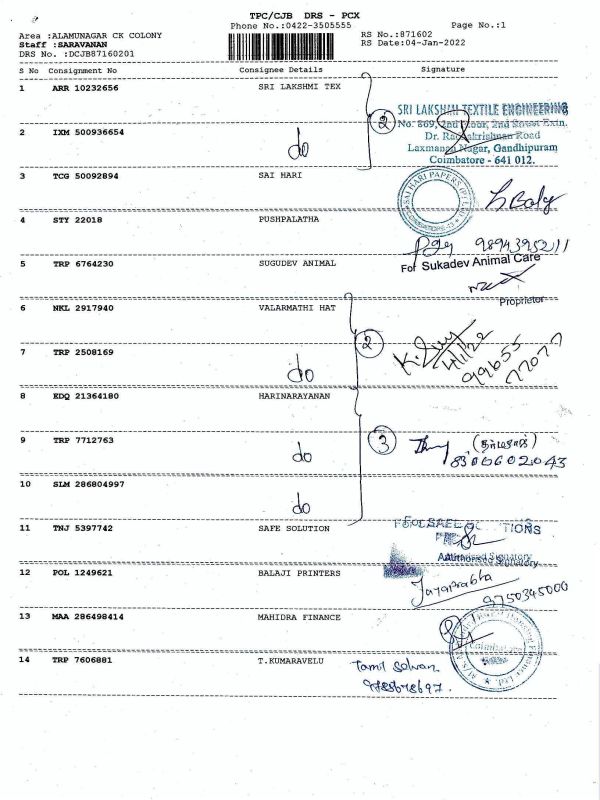 TPC/CJB DRS - PCX
Phone No.:0422-3505555
Page No.:1
Area :ALAMUNAGAR CK COLONY
RS No.:871602
Staff :SARAVANAN
RS Date:04-Jan-2022
DRS No. :DCJB87160201
S No Consignment No Consignee Details Signature
1 ARR 10232656 SRI LAKSHMI TEX
2
SRI LAKSHMI TEXTILE ENGINEERING
No. 869, 2nd Floor, 2nd Street Extn.
Dr. Radhakrishnan Road
Laxmanan Nagar, Gandhipuram
Coimbatore - 641 012.
2 IXM 500936654 do
3 TCG 50092894 SAI HARI
SAI HARI PAPERS (P) Ltd
4 STY 22018 PUSHPALATHA
9894395211
5 TRP 6764230 SUGUDEV ANIMAL
For Sukadev Animal Care
Proprietor
6 NKL 2917940 VALARMATHI HAT
2
4/1/22
99655
77077
7 TRP 2508169 do
8 EDQ 21364180 HARINARAYANAN
3
9 TRP 7712763 do
8306602043
10 SLM 286804997 do
11 TNJ 5397742 SAFE SOLUTION
Authorised Signatory
12 POL 1249621 BALAJI PRINTERS
Jayaprabha
9750345000
13 MAA 286498414 MAHIDRA FINANCE
Coimbatore
14 TRP 7606881 T.KUMARAVELU
Tamil Selvan